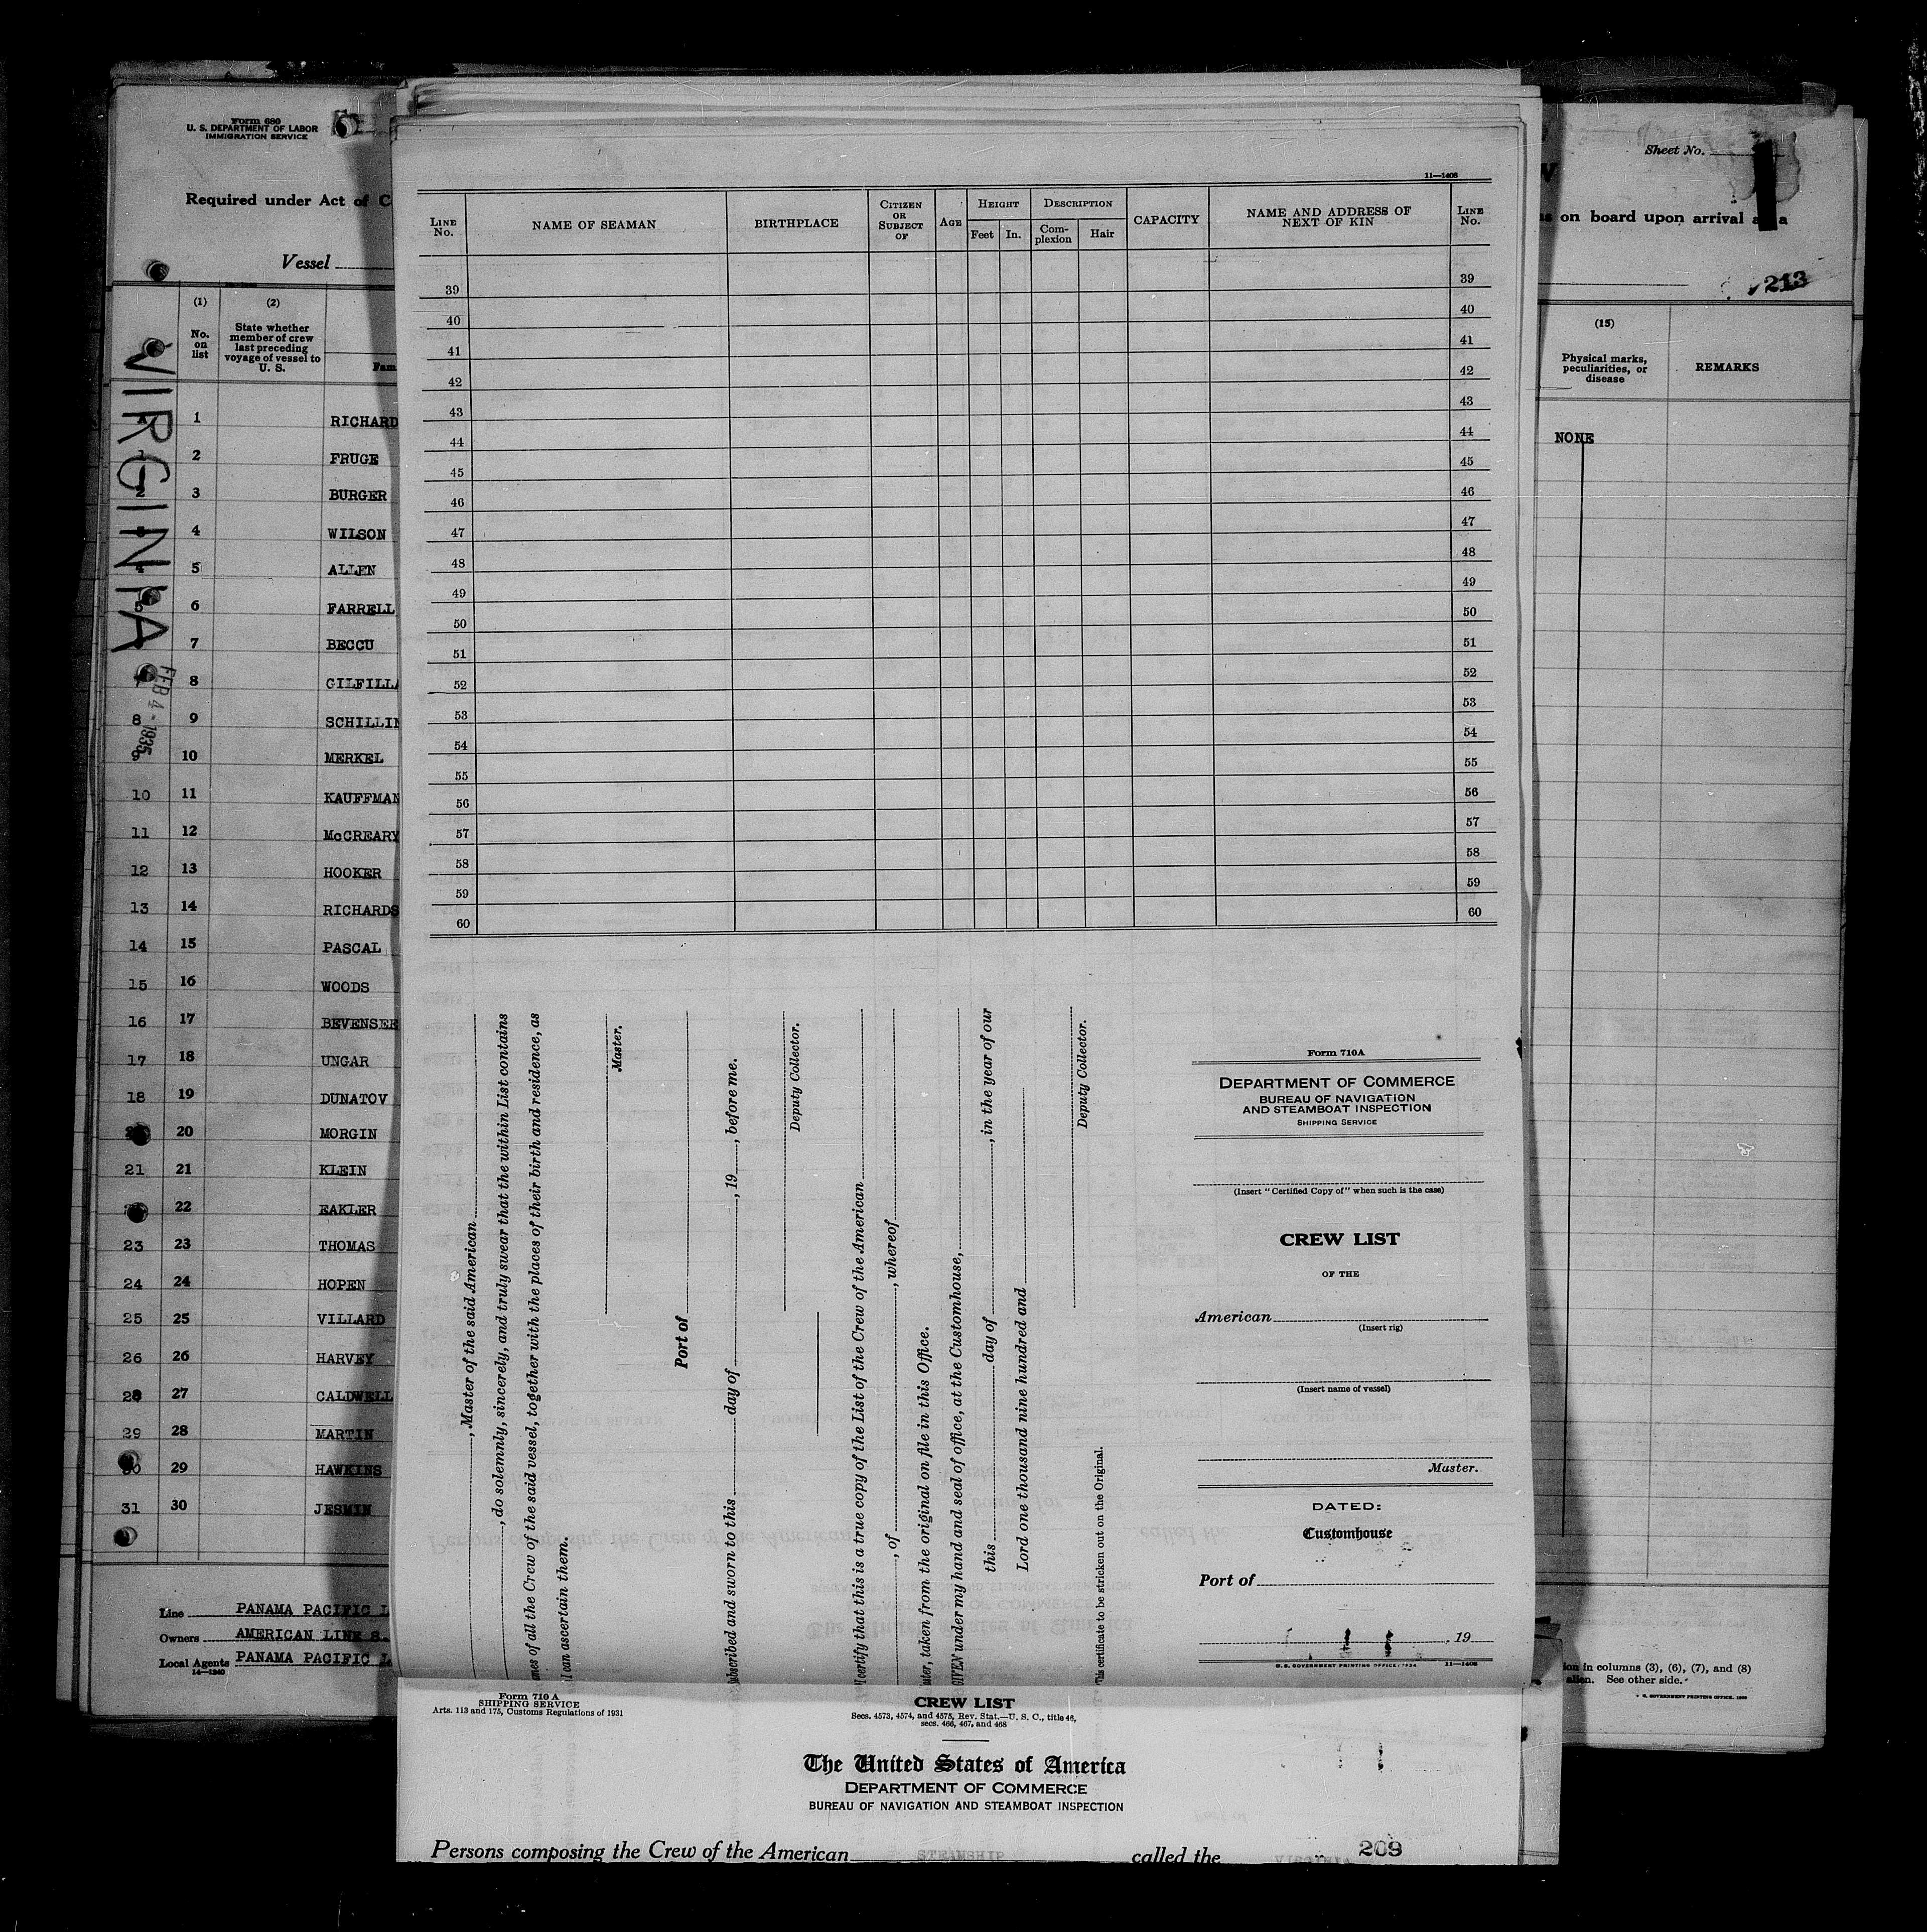 Form 680
U. S. DEPARTMENT OF LABOR
IMMIGRATION SERVICE
Required under Act of C
Vessel
(1)
No. on list
(2)
State whether member of crew last preceding voyage of vessel to U. S.
Fam
VIRGINIA
FEB 4 - 1935
1 RICHARD
2 FRUGE
3 BURGER
4 WILSON
5 ALLEN
6 FARRELL
7 BECCU
8 GILFILLA
8 9 SCHILLIN
9 10 MERKEL
10 11 KAUFFMAN
11 12 McCREARY
12 13 HOOKER
13 14 RICHARDS
14 15 PASCAL
15 16 WOODS
16 17 BEVENSEE
17 18 UNGAR
18 19 DUNATOV
20 MORGIN
21 21 KLEIN
22 EAKLER
23 23 THOMAS
24 24 HOPEN
25 25 VILLARD
26 26 HARVEY
28 27 CALDWELL
29 28 MARTIN
30 29 HAWKINS
31 30 JESMIN
Line PANAMA PACIFIC L
Owners AMERICAN LINE S.
Local Agents PANAMA PACIFIC L
14—1240
11—1408
LINE No.
NAME OF SEAMAN
BIRTHPLACE
CITIZEN OR SUBJECT OF
AGE
HEIGHT
Feet
In.
DESCRIPTION
Complexion
Hair
CAPACITY
NAME AND ADDRESS OF NEXT OF KIN
LINE No.
39 39
40 40
41 41
42 42
43 43
44 44
45 45
46 46
47 47
48 48
49 49
50 50
51 51
52 52
53 53
54 54
55 55
56 56
57 57
58 58
59 59
60 60
, Master of the said American
, do solemnly, sincerely, and truly swear that the within List contains
mes of all the Crew of the said vessel, together with the places of their birth and residence, as
I can ascertain them.
Master.
Port of
ubscribed and sworn to this day of , 19 , before me.
Deputy Collector.
I certify that this is a true copy of the List of the Crew of the American
, of , whereof
ster, taken from the original on file in this Office.
GIVEN under my hand and seal of office, at the Customhouse,
this day of , in the year of our
Lord one thousand nine hundred and
Deputy Collector.
This certificate to be stricken out on the Original.
Form 710A
DEPARTMENT OF COMMERCE
BUREAU OF NAVIGATION
AND STEAMBOAT INSPECTION
SHIPPING SERVICE
(Insert "Certified Copy of" when such is the case)
CREW LIST
OF THE
American
(Insert rig)
(Insert name of vessel)
Master.
DATED:
Customhouse
Port of
, 19
U. S. GOVERNMENT PRINTING OFFICE: 1934 11—1408
Form 710 A
SHIPPING SERVICE
Arts. 113 and 175, Customs Regulations of 1931
CREW LIST
Secs. 4573, 4574, and 4575, Rev. Stat.—U. S. C., title 46,
secs. 466, 467, and 468
The United States of America
DEPARTMENT OF COMMERCE
BUREAU OF NAVIGATION AND STEAMBOAT INSPECTION
Persons composing the Crew of the American STEAMSHIP called the VIRGINIA
209
Sheet No.
s on board upon arrival at a
213
(15)
Physical marks, peculiarities, or disease
REMARKS
NONE
ion in columns (3), (6), (7), and (8)
alien. See other side.
U. S. GOVERNMENT PRINTING OFFICE